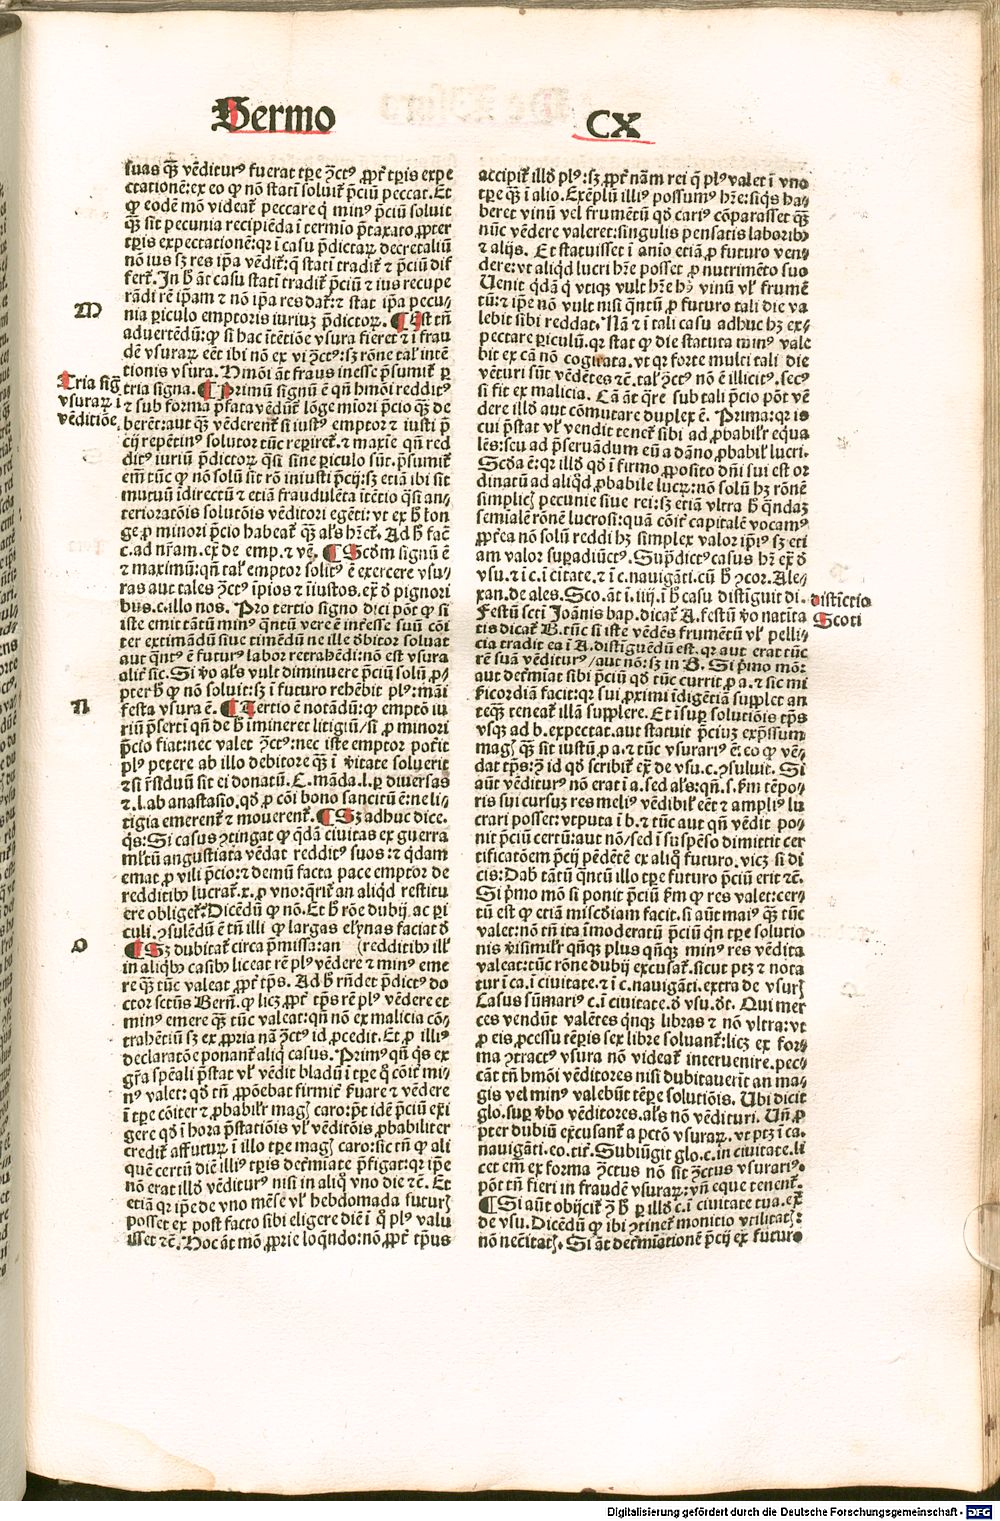 Sermo
CX
suas qȝ vēditurꝰ fuerat tꝑe ꝯctꝰ ꝓpt̄ tꝑis expe
ctationē: ex eo ꝙ nō statī soluit̄ p̄ciū peccat. Et
ꝙ eodē mō videat̄ peccare qͥ minꝰ p̄ciū soluit
qȝ sit pecunia recipiēda ī termīo p̄taxato ꝓpter
tꝑis expectationē: qꝛ ī casu p̄dictaꝝ decretaliū
nō ius sȝ res ip̄a vēdit̄: qͥ statī tradit̄ ⁊ p̄ciū dif
fert̄. In ħ āt casu statī tradit̄ p̄ciū ⁊ ius recupe
rādi rē ip̄am ⁊ nō ip̄a res dat̄: ⁊ stat ip̄a pecu/
nia ꝑiculo emptoris iuriuȝ p̄dictoꝝ. ¶ Est tn̄
aduertēdū: ꝙ si hac ītētiōe vsura fieret ⁊ ī frau
dē vsuraꝝ eēt ibi nō ex vi ꝯctꝰ: sȝ rōne tal' intē
tionis vsura. Hmōi āt fraus inesse p̄sumit̄ ꝑ
tria signa. ¶ Primū signū ē qn̄ hmōi redditꝰ
⁊ sub forma p̄fata vēdūt̄ lōge miori p̄cio qȝ de
berēt: aut qȝ vēderent̄ si iustꝰ emptor ⁊ iusti p̄
cij repētinꝰ solutor tūc reꝑiret̄: ⁊ maxie qn̄ red
ditꝰ iuriū p̄dictoꝝ qͣsi sine ꝑiculo sūt. p̄sumit̄
em̄ tūc ꝙ nō solū sit rō iniusti p̄cij: sȝ etiā ibi sit
mutuū īdirectū ⁊ etiā fraudulēta ītētio qͣsi an/
terioratōis solutōis vēditori egēti: vt ex ħ lon
ge ꝓ minori p̄cio habeat̄ qȝ al's hr̄et̄. Ad ħ fac̄
c. ad nr̄am. ex̄ de emp. ⁊ vē. ¶ Scd'm signū ē
⁊ maximū: qn̄ tal' emptor solitꝰ ē exercere vsu/
ras aut tales ꝯctꝰ īpios ⁊ īiustos. ex̄ d' pignori
bus. c. illo nos. Pro tertio signo dici pōt ꝙ si
iste emit tātū minꝰ qͣntū vere ē inf̄esse suū cōi
ter extimādū siue timēdū ne ille d'bitor soluat
aut qͣntꝰ ē futurꝰ labor retrahēdi: nō est vsura
alit̄ sic. Si vͦo al's vult diminuere p̄ciū solū ꝓ/
pter ħ ꝙ nō soluit: sȝ ī futuro rehēbit plꝰ: māi
festa vsura ē. ¶ Tertio ē notādū: ꝙ emptō iu
riū p̄serti qn̄ de ħ imineret litigiū/ si ꝓ minori
p̄cio fiat: nec valet ꝯctꝰ: nec iste emptor poīt
plꝰ petere ab illo debitore qȝ ī v̄itate soluerit
⁊ si rn̄sduū sit ei donatū. C. māda. l. ꝑ diuersas
⁊ l. ab anastasio. qd' ꝓ cōi bono sancitū ē: ne li/
tigia emerent̄ ⁊ mouerent̄. ¶ Sȝ adhuc dice.
qͥs: Si casus ꝯtingat ꝙ qd'ā ciuitas ex guerra
ml'tū angustiata vēdat redditꝰ suos: ⁊ qͥdam
emat ꝓ vili p̄cio: ⁊ demū facta pace emptor de
redditibꝰ lucrat̄. x. ꝓ vno: qͥrit̄ an aliqd restitu
ere obliget̄: Dicēdū ꝙ nō. Et ħ rōe dubij ac ꝑi
culi. ꝯsulēdū ē tn̄ illi ꝙ largas elȳnas faciat d'
¶ Sȝ dubitat̄ circa p̄missa: an (redditibꝰ ill'
in aliqͥbꝰ casibꝰ liceat rē plꝰ vēdere ⁊ minꝰ eme
re qȝ tūc valeat ꝓpt̄ tp̄s. Ad ħ rn̄det p̄dictꝰ do
ctor sctūs Bern̄. ꝙ licȝ ꝓpt̄ tp̄s rē plꝰ vēdere et
minꝰ emere qȝ tūc valeat: qn̄ nō ex malicia cō/
trahētiū sȝ ex ꝓpria nā ꝯctꝰ id ꝓcedit. Et ꝓ illiꝰ
declaratōe ponant̄ aliqͥ casus. Primꝰ qn̄ qͥs ex
gr̄a sp̄eali p̄stat vl' vēdit bladū ī tꝑe qͦ cōit̄ mi/
nꝰ valet: qd' tn̄ ꝓpōebat firmit̄ ẜuare ⁊ vēdere
ī tꝑe cōiter ⁊ ꝓbabil'r magꝭ caro: p̄t idē p̄ciū exi
gere qd' ī hora p̄statiōis vl' vēditōis ꝓbabiliter
credit̄ affuturꝝ ī illo tꝑe magꝭ caro: sic tn̄ ꝙ ali
quē certū diē illiꝰ tꝑis det̄miate p̄figat: qꝛ ip̄e
nō erat illd' vēditurꝰ nisi in aliqͦ vno die ⁊c̄. Et
etiā qꝛ ip̄e de vno mēse vl' hebdomada futurꝭ
posset ex post facto sibi eligere diē ī qͦ plꝰ valu
isset ⁊c̄. Hoc āt mō ꝓprie loqͥndo: nō ꝓpt̄ tp̄us
M
Tria siḡ
vsuraꝝ ī
vēditiōe.
N
O
accipit̄ illd' plꝰ: sȝ ꝓpt̄ nām rei qͥ plꝰ valet ī vno
tꝑe qȝ ī alio. Exēplū illiꝰ possumꝰ hr̄e: siqͥs ha/
beret vinū vel frumētū qd' cariꝰ cōparasset qȝ
nūc vēdere valeret: singulis pensatis laboribꝰ
⁊ alijs. Et statuisset ī anīo etiā ꝓ futuro ven/
dere: vt aliqd lucri hr̄e posset ꝓ nutrimēto suo
Uenit qd'ā qͥ vtiqꝫ vult hr̄e hꝰ vinū vl' frumē
tū: ⁊ ip̄e nō vult nisi qͣntū ꝓ futuro tali die va
lebit sibi reddat. Nā ⁊ ī tali casu adhuc hȝ ex/
pectare ꝑiculū. qꝛ stat ꝙ die statuta minꝰ vale
bit ex cā nō cogitata. vt qꝛ forte multi tali die
vēturi sūt vēdētes ⁊c̄. tal' ꝯctꝰ nō ē illicitꝰ. secꝰ
si fit ex malicia. Cā āt qͣre sub tali p̄cio pōt vē
dere illd' aut cōmutare duplex ē. Prima: qꝛ is
cui p̄stat vl' vendit tenet̄ sibi ad ꝓbabil'r equa
lēs: seu ad p̄seruādum eū a dāno ꝓbabil' lucri.
Scd'a ē: qꝛ illd' qd' ī firmo ꝓposito dn̄i sui est or
dinatū ad aliqd ꝓbabile lucꝝ: nō solū hȝ rōnē
simplicꝭ pecunie siue rei: sȝ etiā vltra ħ qͣndaȝ
semialenē rōnē lucrosi: quā cōit̄ capitalē vocamꝰ
ꝓpt̄ea nō solū reddi hȝ simplex valor ip̄iꝰ sȝ eti
am valor suꝑadiūctꝰ. Sup̄dictꝰ casus hȝ ex̄ d'
vsu. ⁊ ī c. ī ciuitate. ⁊ ī c. nauigāti. cū ħ ꝯcor. Ale/
xan. de ales. Sco. āt ī. iiij. ī ħ casu distīguit di.
Festū scti Joānis bap. dicat̄ A. festū v̄o natīta
tis dicat̄ B. tūc si iste vēdēs frumētū vl' pelli/
cia tradit ea ī A. distīguēdū est. qꝛ aut erat tūc
rē suā vēditurꝰ/ aut nō: sȝ in B. Si p̄mo mō:
aut det̄miat sibi p̄ciū qd' tūc currit ꝓ a. ⁊ sic mi
ẜicordiā facit: qꝛ sui ꝓximi īdigētiā supplet an
teqȝ teneat̄ illā supplere. Et īsuꝑ solutiōis tp̄s
vsqꝫ ad b. expectat. aut statuit p̄ciuȝ exp̄ssum
magꝭ qȝ sit iustū ꝓ a. ⁊ tūc vsurariꝰ ē: eo ꝙ vē/
dat tp̄s: ꝯ id qd' scribit̄ ex̄ de vsu. c. ꝯsuluit. Si
aūt vēditurꝰ nō erat ī a. sed al's: qn̄. s. ẜm tēpo/
ris sui cursuȝ res meliꝰ vēdibil' eēt ⁊ ampliꝰ lu
crari posset: vtputa ī b. ⁊ tūc aut qn̄ vēdit po/
nit p̄ciū certū: aut nō/ sed ī suspēso dimittit cer
tificatōem p̄cij pēdētē ex aliqͦ futuro. vicȝ si di
cis: Dabꝭ tātū qͣntū illo tꝑe futuro p̄ciū erit ⁊c̄.
Si p̄mo mō si ponit p̄ciū ẜm ꝙ res valet: cer/
tū est ꝙ etiā miscd'iam facit. si aūt maiꝰ qȝ tūc
valet: nō tn̄ ita īmoderatū p̄ciū qn̄ tꝑe solutio
nis v̄isimil'r qn̄qꝫ plus qn̄qꝫ minꝰ res vēdita
valeat: tūc rōne dubij excusat̄. sicut ptȝ ⁊ nota
tur ī ca. ī ciuitate. ⁊ ī c. nauigāti. extra de vsurꝭ
Casus sūmariꝰ c. ī ciuitate. d' vsu. d't. Qui mer
ces vendūt valētes qͥnqꝫ libras ⁊ nō vltra: vt
ꝓ eis ꝓcessu tēꝑis sex libre soluant̄: licȝ ex for/
ma ꝯtractꝰ vsura nō videat̄ interuenire. pec/
cāt tn̄ hmōi vēditores nisi dubitauerīt an ma/
gis vel minꝰ valebūt tēꝑe solutiōis. Ubi dicit
glo. suꝑ v̄bo vēditores. al's nō vēdituri. Un̄ ꝓ
pter dubiū excusant̄ a pctō vsuraꝝ. vt ptȝ ī ca.
nauigāti. eo. tit̄. Subiūgit glo. c. in ciuitate. li
cet em̄ ex forma ꝯctus nō sit ꝯctus vsurariꝰ.
pōt tn̄ fieri in fraudē vsuraꝝ: vn̄ eque tenent̄.
¶ Si aūt obijcit̄ ꝯ ħ ꝑ illd' c. ī ciuitate tua. ex̄
de vsu. Dicēdū ꝙ ibi ꝯtinet̄ monitio vtilitatꝭ:
nō nec̄itatꝭ. Si āt det̄mīationē p̄cij ex futuro
distīctio
Scoti
Digitalisierung gefördert durch die Deutsche Forschungsgemeinschaft - DFG